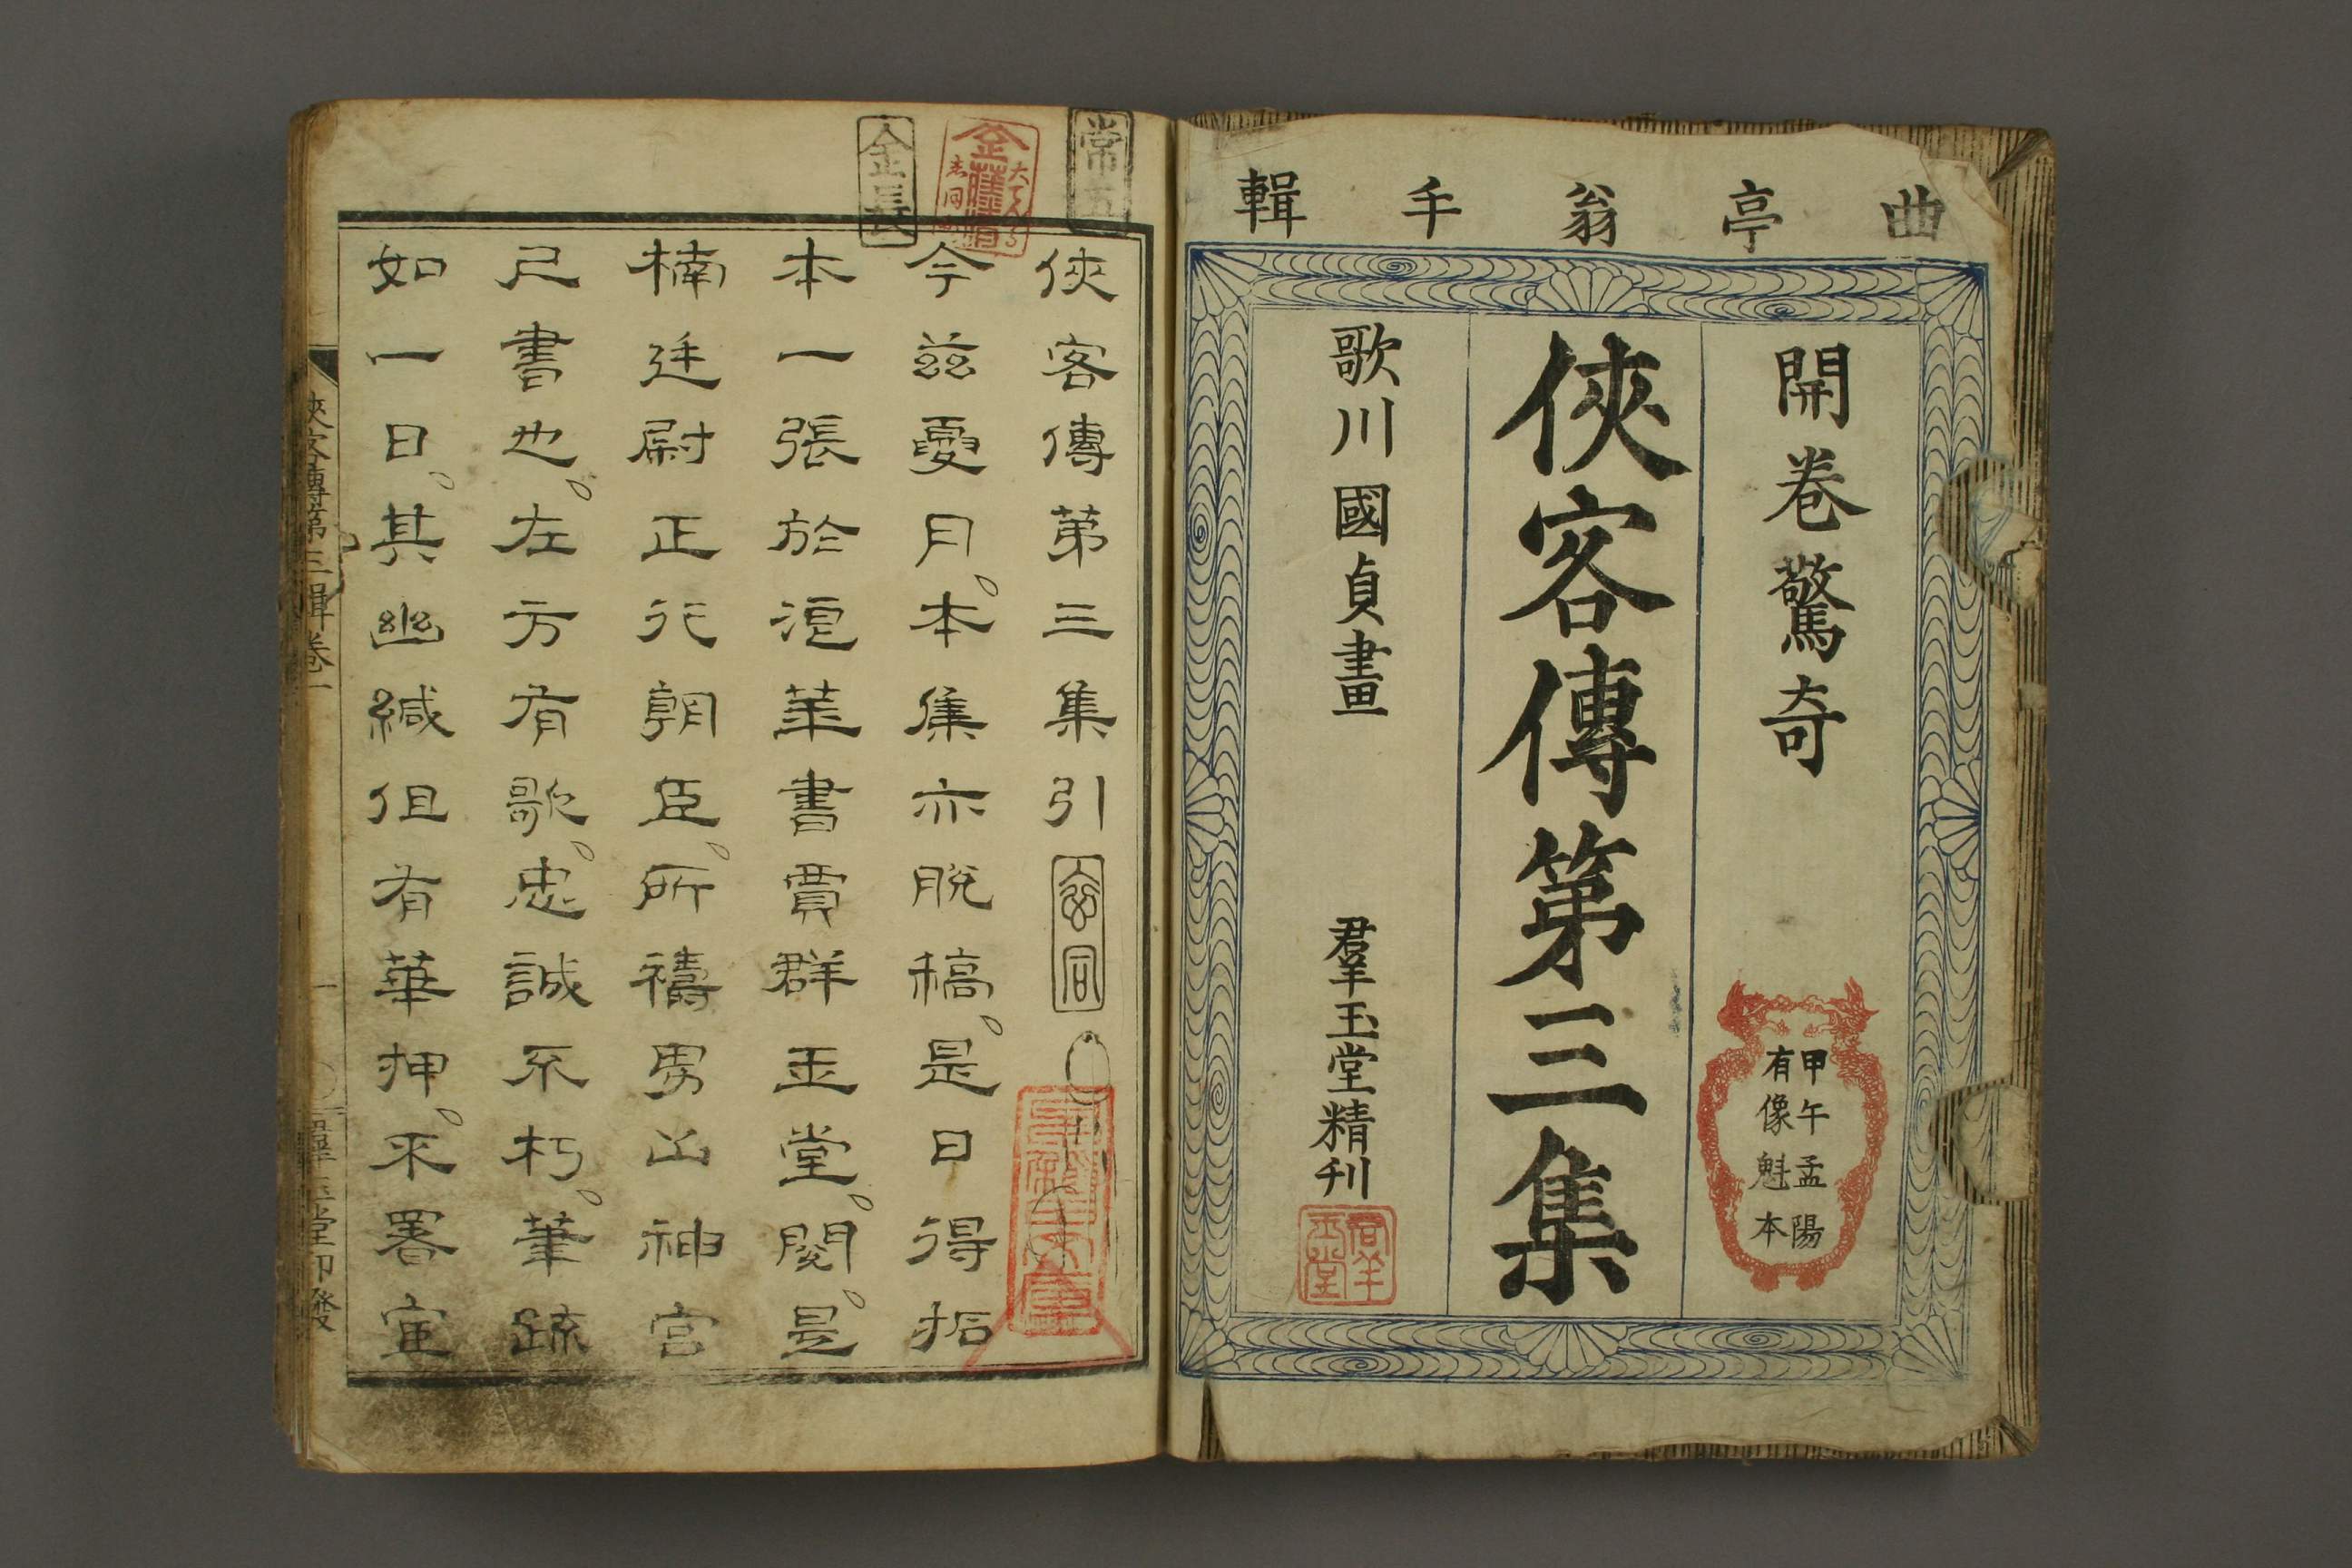 曲亭翁手輯
開巻驚奇
甲午孟陽
有像魁本
俠客傳第三集
歌川國貞畫
羣玉堂精刊
俠客傳第三集引
今茲憂月。本集亦脫稿。是日得拓
本一張於浪華書賈群玉堂。閱。是
楠廷尉正行朝臣。所禱男山神宮
已書也。左方有歌。忠誠不朽。筆跡
如一日。其幽緘但有華押。不署宦
俠客傳第三輯卷一
一
常五
金長